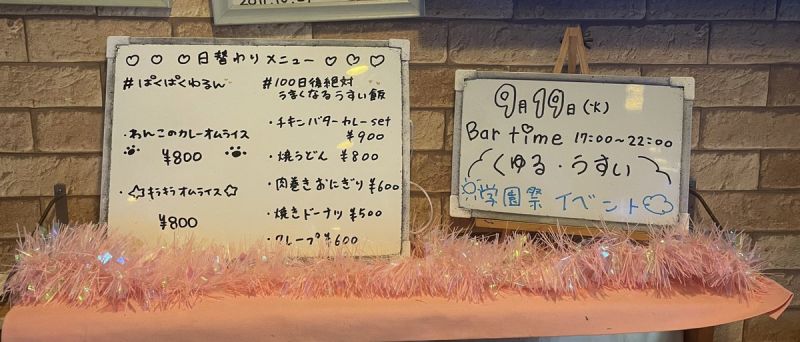 2017.10.21
♡ ♡ ♡ 日替わりメニュー ♡ ♡ ♡
#ぱくぱくわるん
・わんこのカレーオムライス
¥800
・☆キラキラオムライス☆
¥800
#100日後絶対
うまくなるうすい飯
・チキンバターカレーset
¥900
・焼うどん ¥800
・肉巻きおにぎり ¥600
・焼きドーナツ ¥500
・クレープ ¥600
9月19日(火)
Bar time 17:00~22:00
くゆる・うすい
学園祭 イベント